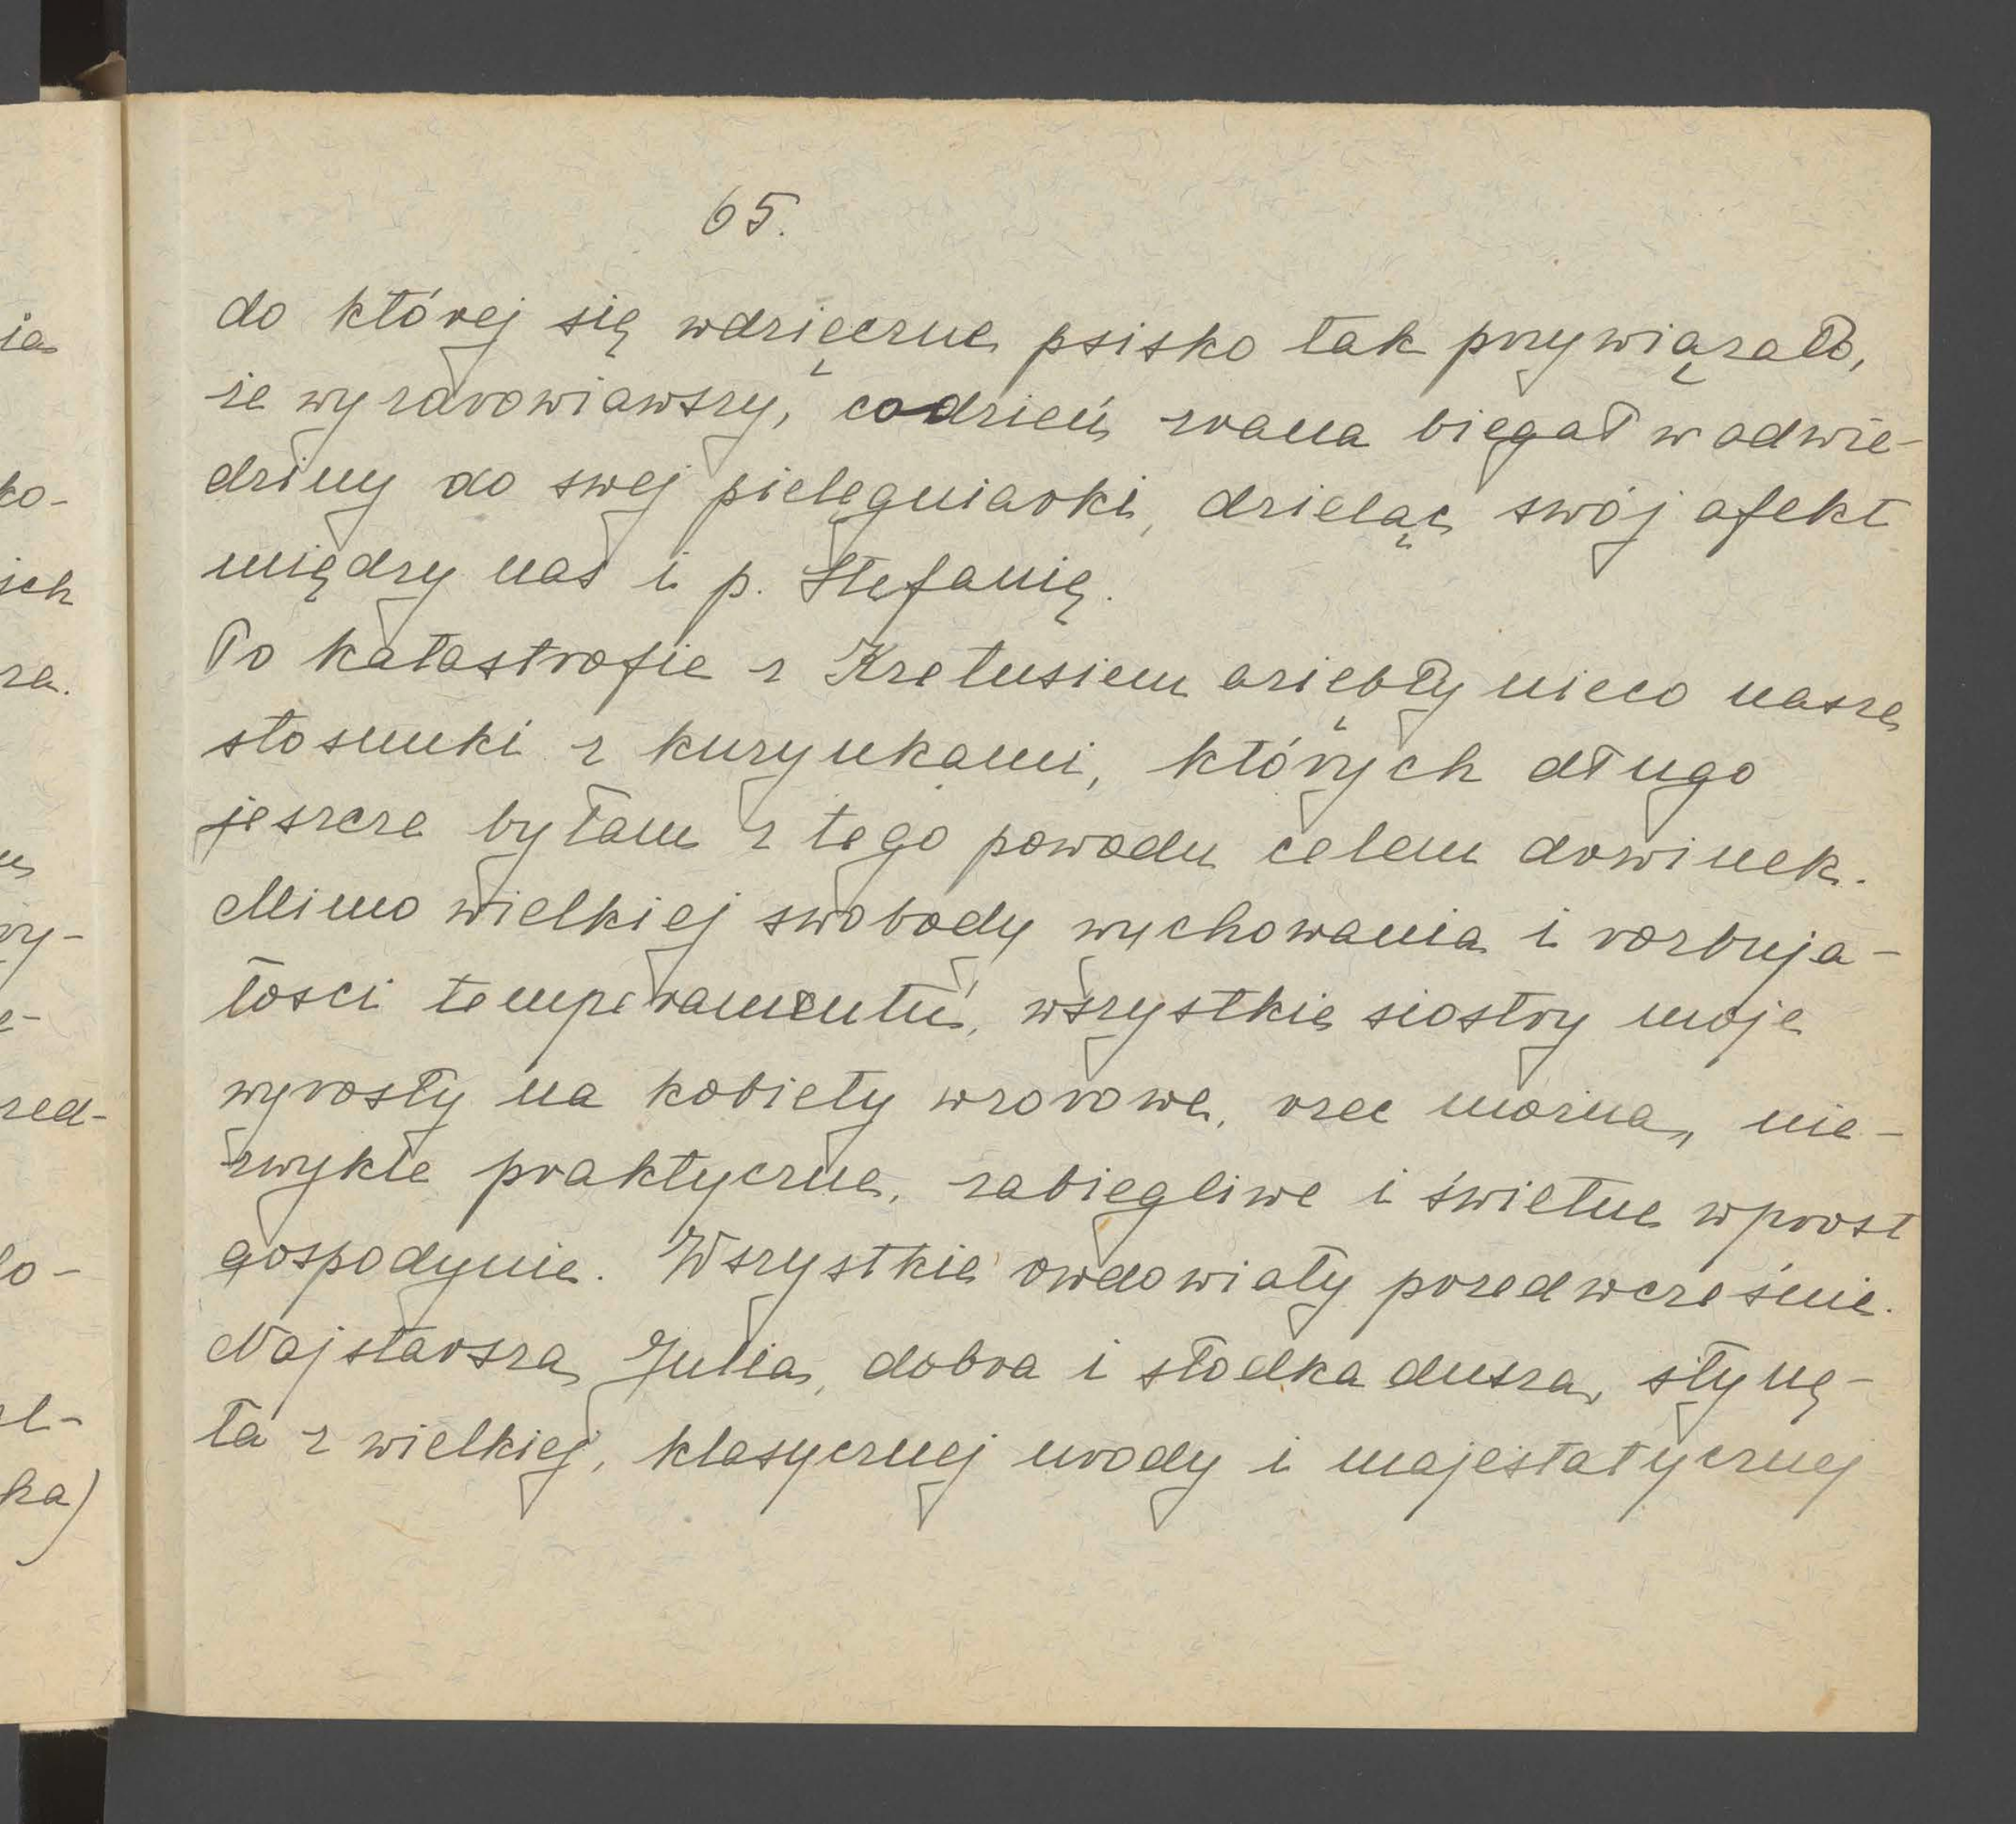 65.
do której się wdzięczne psisko tak przywiązało,
że wyzdrowiawszy, codzień zrana biegał w odwie-
dziny do swej pielęgniarki, dzieląc swój afekt
między nas i p. Stefanię.
Po katastrofie z Kretusiem oziębły nieco nasze
stosunki z kuzynkami, których długo
jeszcze byłam z tego powodu celem drwinek.
Mimo wielkiej swobody wychowania i rozbuja-
łości temperamentu, wszystkie siostry moje
wyrosły na kobiety wzorowe, rzec można, nie-
zwykle praktyczne, zabiegliwe i świetne wprost
gospodynie. Wszystkie owdowiały przedwcześnie.
Najstarsza, Julia, dobra i słodka dusza, słynę-
ła z wielkiej, klasycznej urody i majestatycznej
ia
ko-
ich
za.
ry-
e-
zed-
ło-
el-
ka)